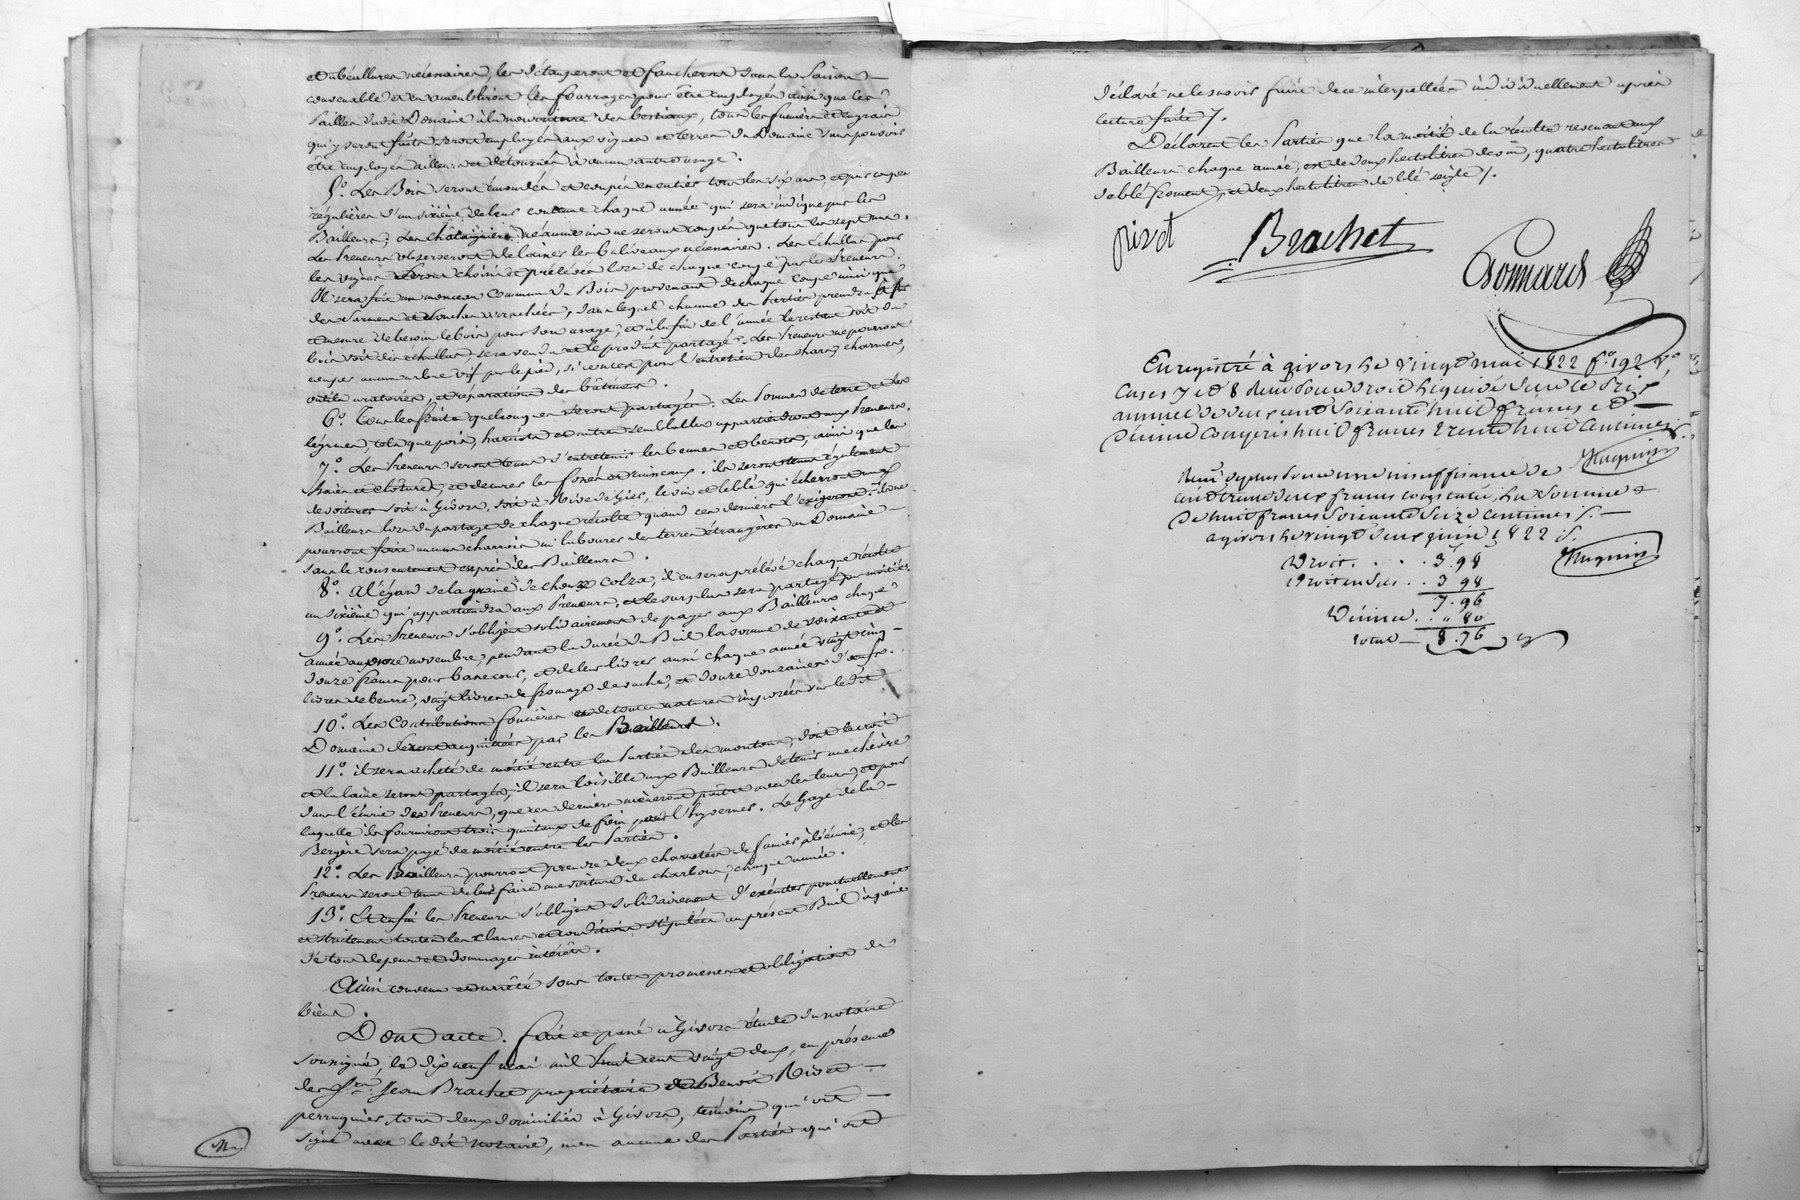 et abcultures nécessaires, les étangeront et faucheront dans la saison
convenable et en ameubliront les fourrages pour être employés ainsi que les
pailles du dit Domaine à la nourriture des bestiaux, tous les fumiers et engrais
qui y seront faits seront employés aux vignes et terres du Domaine sans pouvoir
être employés ailleurs et détournés à aucun autre usage.
5.° Les Bois seront émondés et coupés en entier tous les six ans, et par coupes
régulières d'un sixième de leur contenue chaque année qui sera indiqué par les
Bailleurs; Les châtaigniers néanmoins ne seront coupés que tous les sept ans.
Les Preneurs observeront de laisser les baliveaux nécessaires. Les échallas pour
les vignes seront choisis et prélevés lors de chaque coupe par les Preneurs.
Il sera fait un monceau commun du Bois provenant de chaque coupe ainsi que
des sarmens et souches arrachées, dans lequel chacune des Parties prendra à fur
et mesure de besoin le bois pour son usage, et à la fin de l'année le restant soit du
bois soit des échallas, sera vendu et le produit partagé. Les Preneurs ne pourront
couper aucun arbre vif par le pied, si ce n'est pour l'entretien des chars, charrues,
outils aratoires, et réparations des bâtimens.
6.° Tous les fruits quelconques seront partagés. Les Pommes de terre et les
légumes, tels que pois, haricots et autres semblables appartiendront aux Preneurs.
7.° Les Preneurs seront tenus d'entretenir les bennes et benots, ainsi que les
haies et clôtures, et de curer les fossés et ruisseaux. ils seront tenus également
de voiturer soit à Givors, soit à Rive de Gier, le vin et le blé qui écherront aux
Bailleurs lors du partage de chaque récolte quand ces derniers l'exigeront. ils ne
pourront faire aucuns charrois ni labourer des terres étrangères au Domaine
sans le consentement exprès des Bailleurs.
8.° A l'égard de la graine de choux Colza, il en sera prélevé chaque récolte
un sixième qui appartiendra aux Preneurs, et le surplus sera partagé par moitié.
9.° Les Preneurs s'obligent solidairement de payer aux Bailleurs chaque
année au onze novembre, pendant la durée du Bail la somme de soixante et
douze francs pour basse cour, et de leur livrer aussi chaque année vingt cinq
livres de beurre, vingt livres de fromage de vache, et douze douzaines d'œufs.
10.° Les Contributions foncières et de toutes natures imposées sur le dit
Domaine seront acquittées par les Bailleurs.
11.° il sera acheté de moitié entre les Parties des moutons, dont le croit
et la laine seront partagés, il sera loisible aux Bailleurs de tenir une chèvre
dans l'écurie des Preneurs, que ces derniers mèneront paître avec les leurs, et pour
laquelle ils fourniront trois quintaux de foin pour l'hyverner. Le Gage de la
Bergère sera payé de moitié entre les Parties.
12.° Les Bailleurs pourront prendre deux charretées de fumier à l'écurie, et les
Preneurs seront tenus de leur faire une voiture de charbon, chaque année.
13.° Et enfin les Preneurs s'obligent solidairement d'exécuter ponctuellement
et strictement toutes les clauses et conditions stipulées au présent Bail à peine
de tous dépens et dommages intérêts.
Ainsi convenu et arrêté sous toutes promesses et obligations de
biens.
Dont acte. fait et passé à Givors étude du notaire
soussigné, le dix neuf mai mil huit cent vingt deux, en présence
des Srs. Jean Brachet propriétaire et Benoit Rivet
perruquier, tous deux domiciliés à Givors, témoins qui ont
signé avec le dit notaire, non aucune des Parties qui ont
déclaré ne le savoir faire de ce interpellées individuellement après
lecture faite /.
Déclarent les Parties que la moitié de la récolte revenant aux
Bailleurs chaque année, est de deux hectolitres de vin, quatre hectolitres
de blé froment, et deux hectolitres de blé seigle /.
rivet
Brachet
Bonnard
Enregistré à givors le vingt mai 1822 f.° 192 v.°
cases 7 et 8 Reçu pour droit liquidé sur le prix
annuel de deux cent soixante huit francs et
décime compris huit francs trente huit centimes
Hugnin
Reçu de plus pour une insuffisance de
cent trente deux francs constatée, la somme
de huit francs soixante seize centimes /.
a givors le vingt deux juin 1822 /.
Hugnin
Droit . . . 3.98
Droit en sus . . 3 98
7.96
Décime . . " 80
Total — 8.76